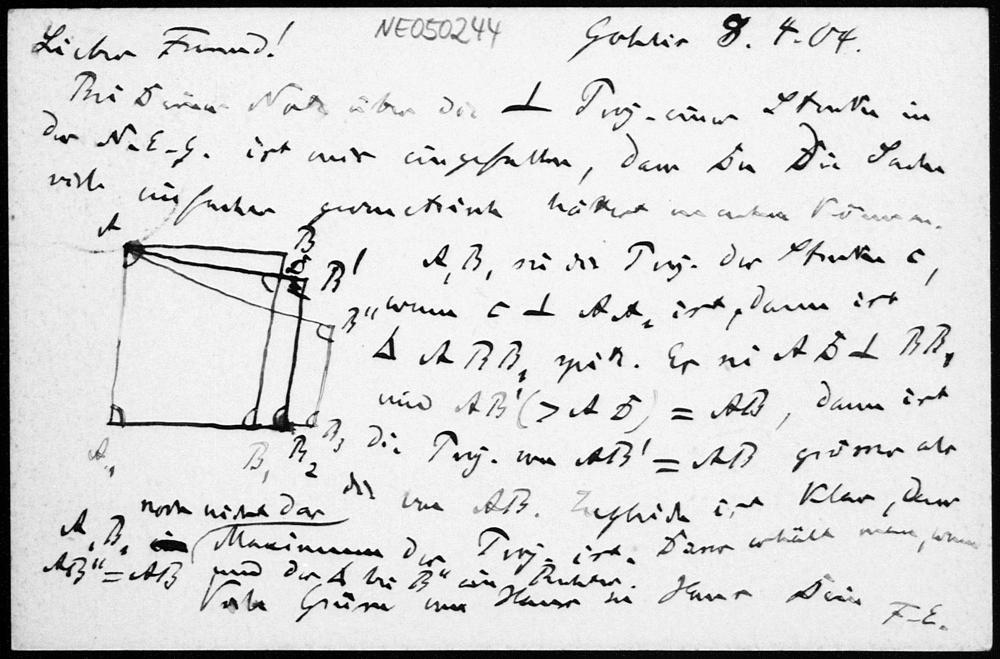 NE050244
Lieber Freund! Gohlis 8. 4. 04.
Bei Deiner Note über die ⊥ Proj. einer Strecke in
der N.E.G. ist mir eingefallen, dass Du Die Sache
viel einfacher geometrisch hättest machen können.
A B B' B" A₁ B₁ B₂ B₃
A₁B₁ sei die Proj. der Strecke c,
wenn c ⊥ AA₁ ist, dann ist
∆ ABB₁ spitz. Es sei AD ⊥ BB₁
und AB' (> AD) = AB, dann ist
die Proj. von AB' = AB grösser als
die von AB. Zugleich ist klar, dass
A₁B₁ noch nicht das Maximum der Proj. ist. Dieses erhält man, wenn
AB" = AB und der ∆ bei B" ein Rechter.
Viele Grüsse von Haus zu Haus Dein F.E.